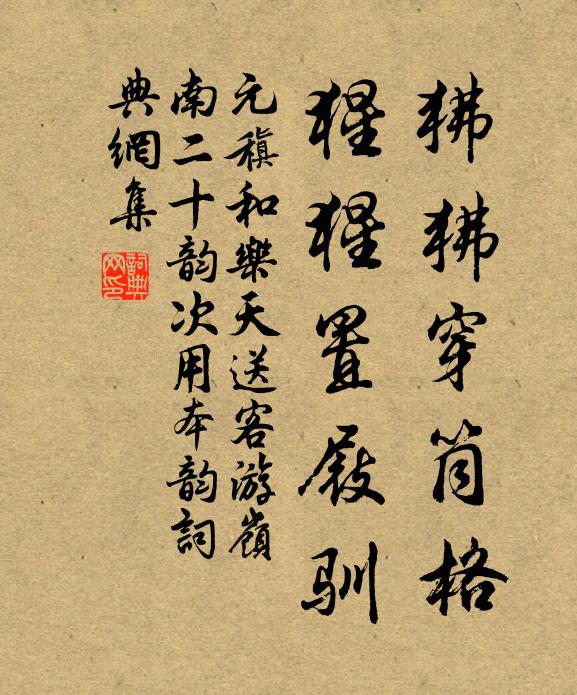 狒狒穿筒格
猩猩置屐驯
元稹和樂天送客游嶺
南二十韵次用本韵詞
典網集
詞典
网印